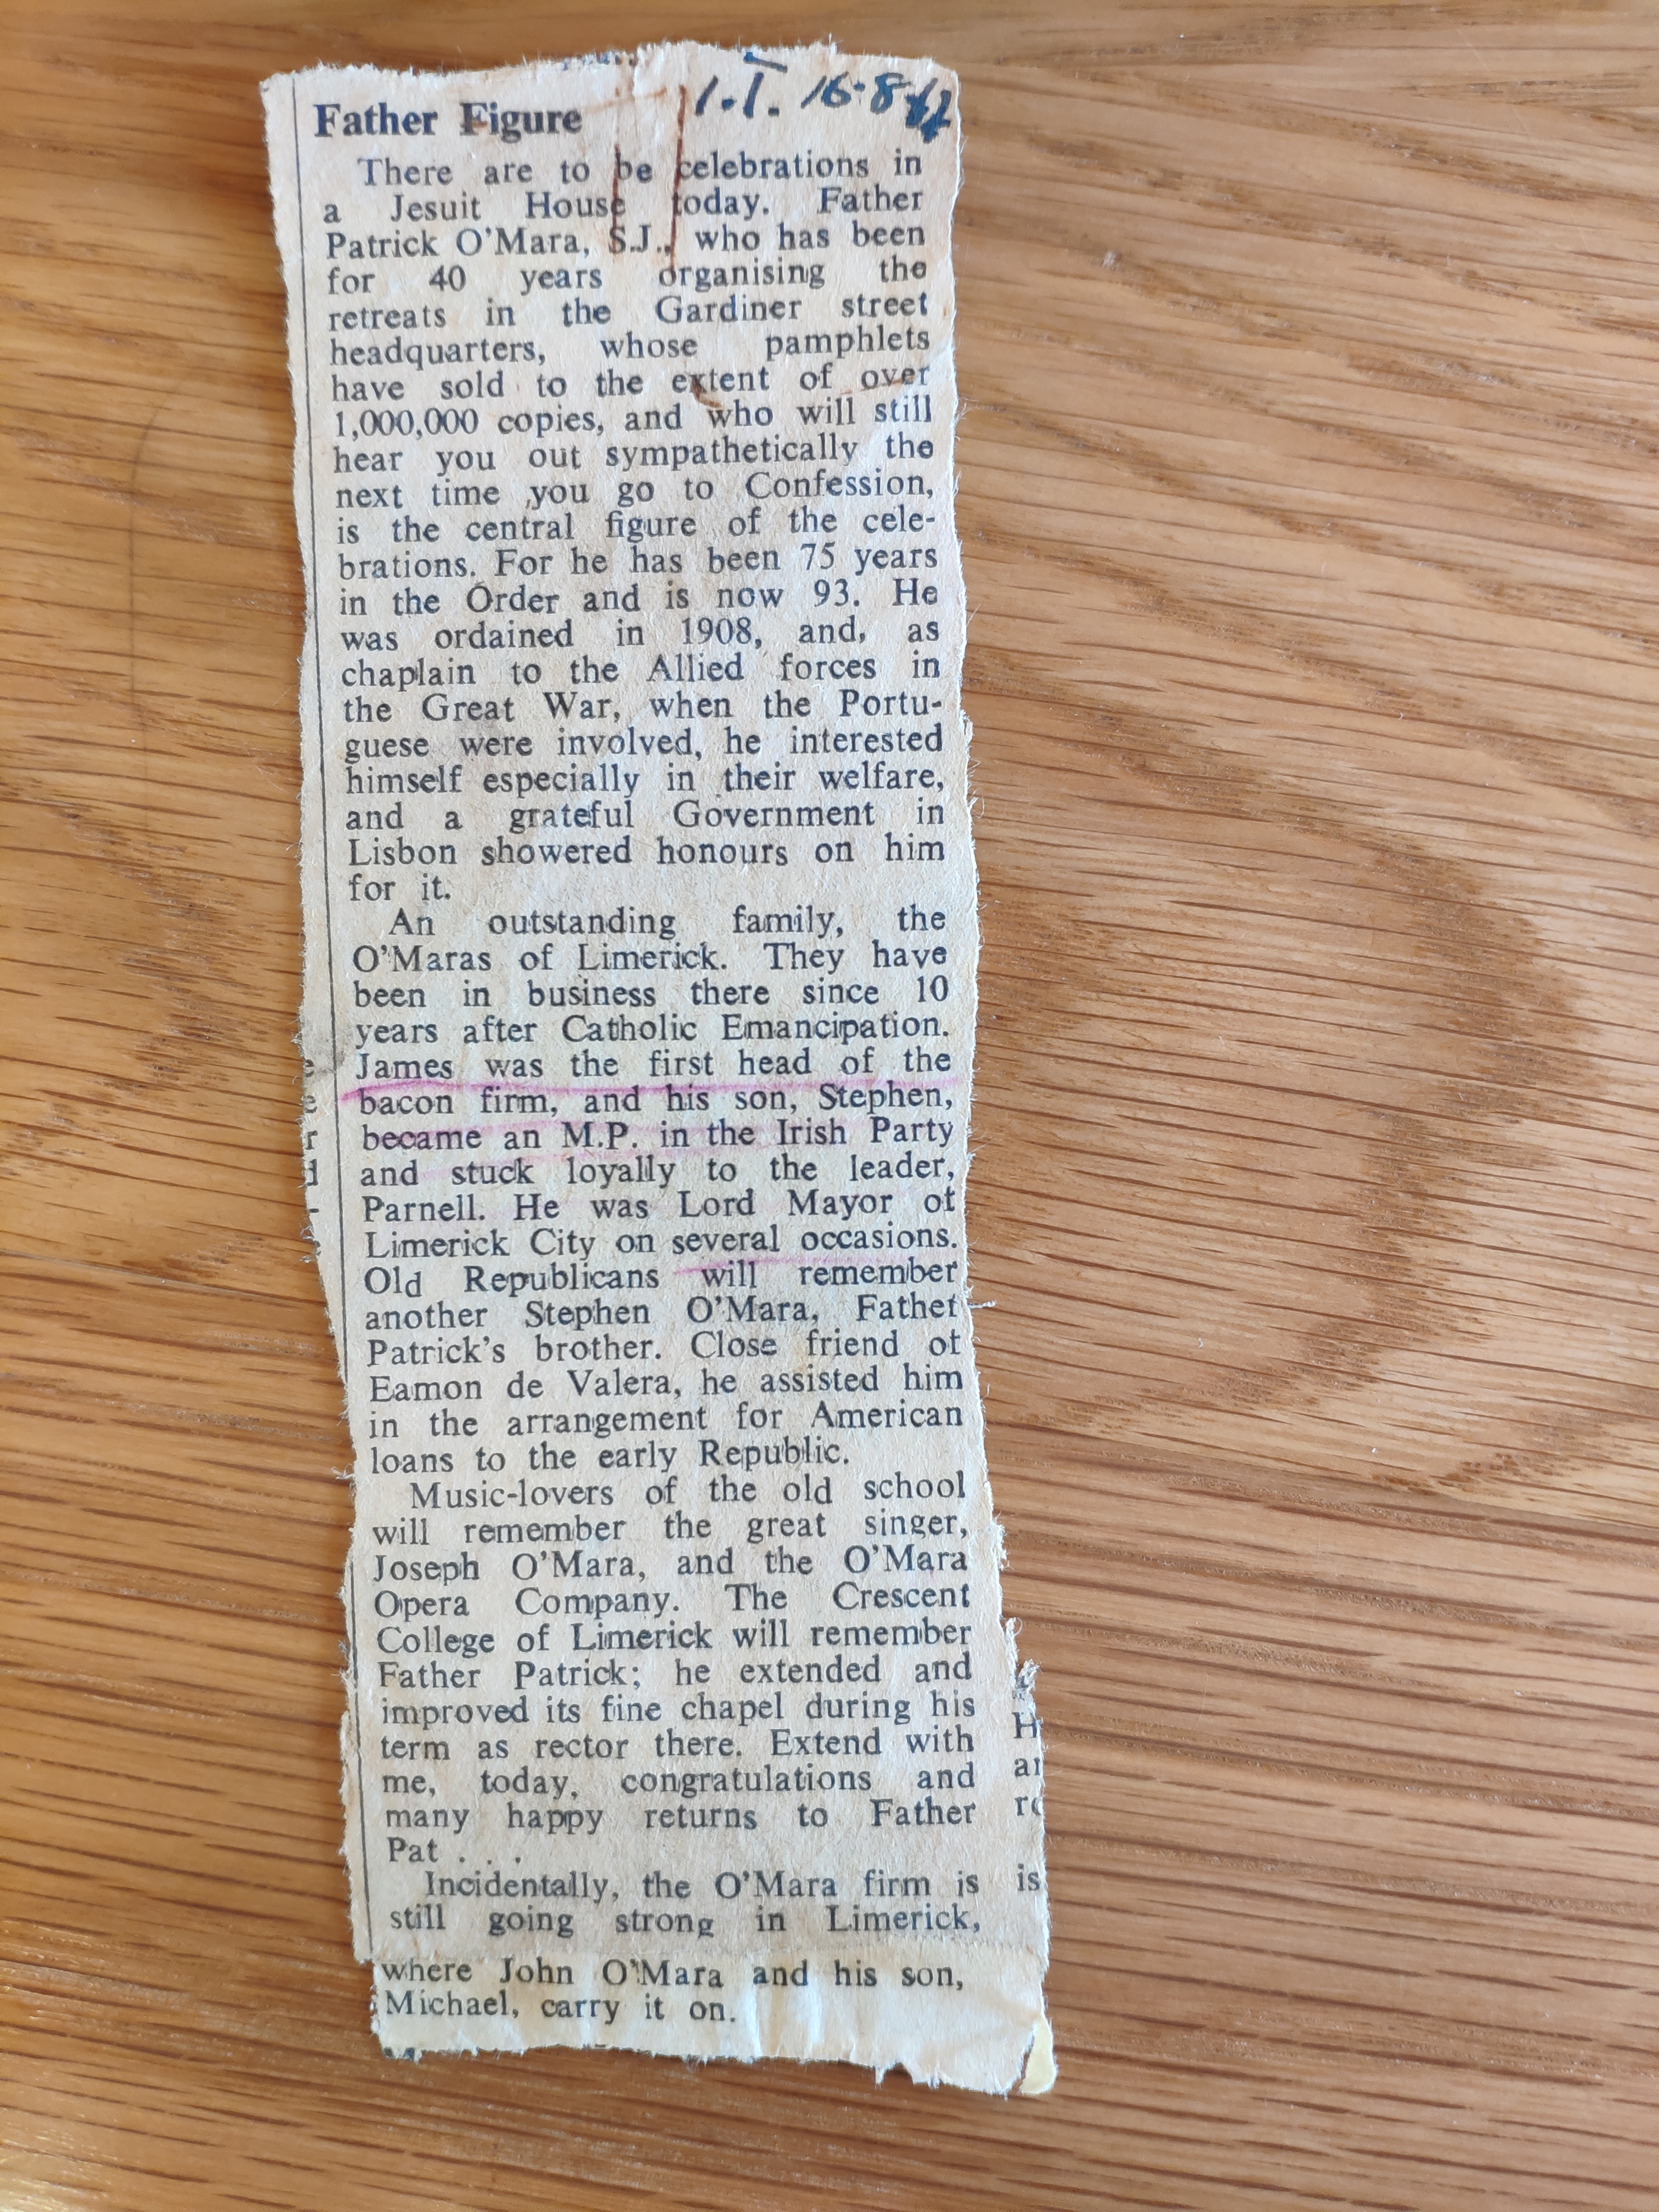 Father Figure
I.I. 16-8-
There are to be celebrations in
a Jesuit House today. Father
Patrick O'Mara, S.J., who has been
for 40 years organising the
retreats in the Gardiner street
headquarters, whose pamphlets
have sold to the extent of over
1,000,000 copies, and who will still
hear you out sympathetically the
next time you go to Confession,
is the central figure of the cele-
brations. For he has been 75 years
in the Order and is now 93. He
was ordained in 1908, and, as
chaplain to the Allied forces in
the Great War, when the Portu-
guese were involved, he interested
himself especially in their welfare,
and a grateful Government in
Lisbon showered honours on him
for it.
An outstanding family, the
O'Maras of Limerick. They have
been in business there since 10
years after Catholic Emancipation.
James was the first head of the
bacon firm, and his son, Stephen,
became an M.P. in the Irish Party
and stuck loyally to the leader,
Parnell. He was Lord Mayor of
Limerick City on several occasions.
Old Republicans will remember
another Stephen O'Mara, Father
Patrick's brother. Close friend of
Eamon de Valera, he assisted him
in the arrangement for American
loans to the early Republic.
Music-lovers of the old school
will remember the great singer,
Joseph O'Mara, and the O'Mara
Opera Company. The Crescent
College of Limerick will remember
Father Patrick; he extended and
improved its fine chapel during his
term as rector there. Extend with
me, today, congratulations and
many happy returns to Father
Pat . . .
Incidentally, the O'Mara firm is
still going strong in Limerick,
where John O'Mara and his son,
Michael, carry it on.